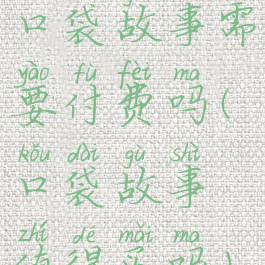 口袋故事需
yào fù fèi ma
要付费吗(
kǒu dài gù shì
口袋故事
zhí dé mǎi ma
值得买吗)